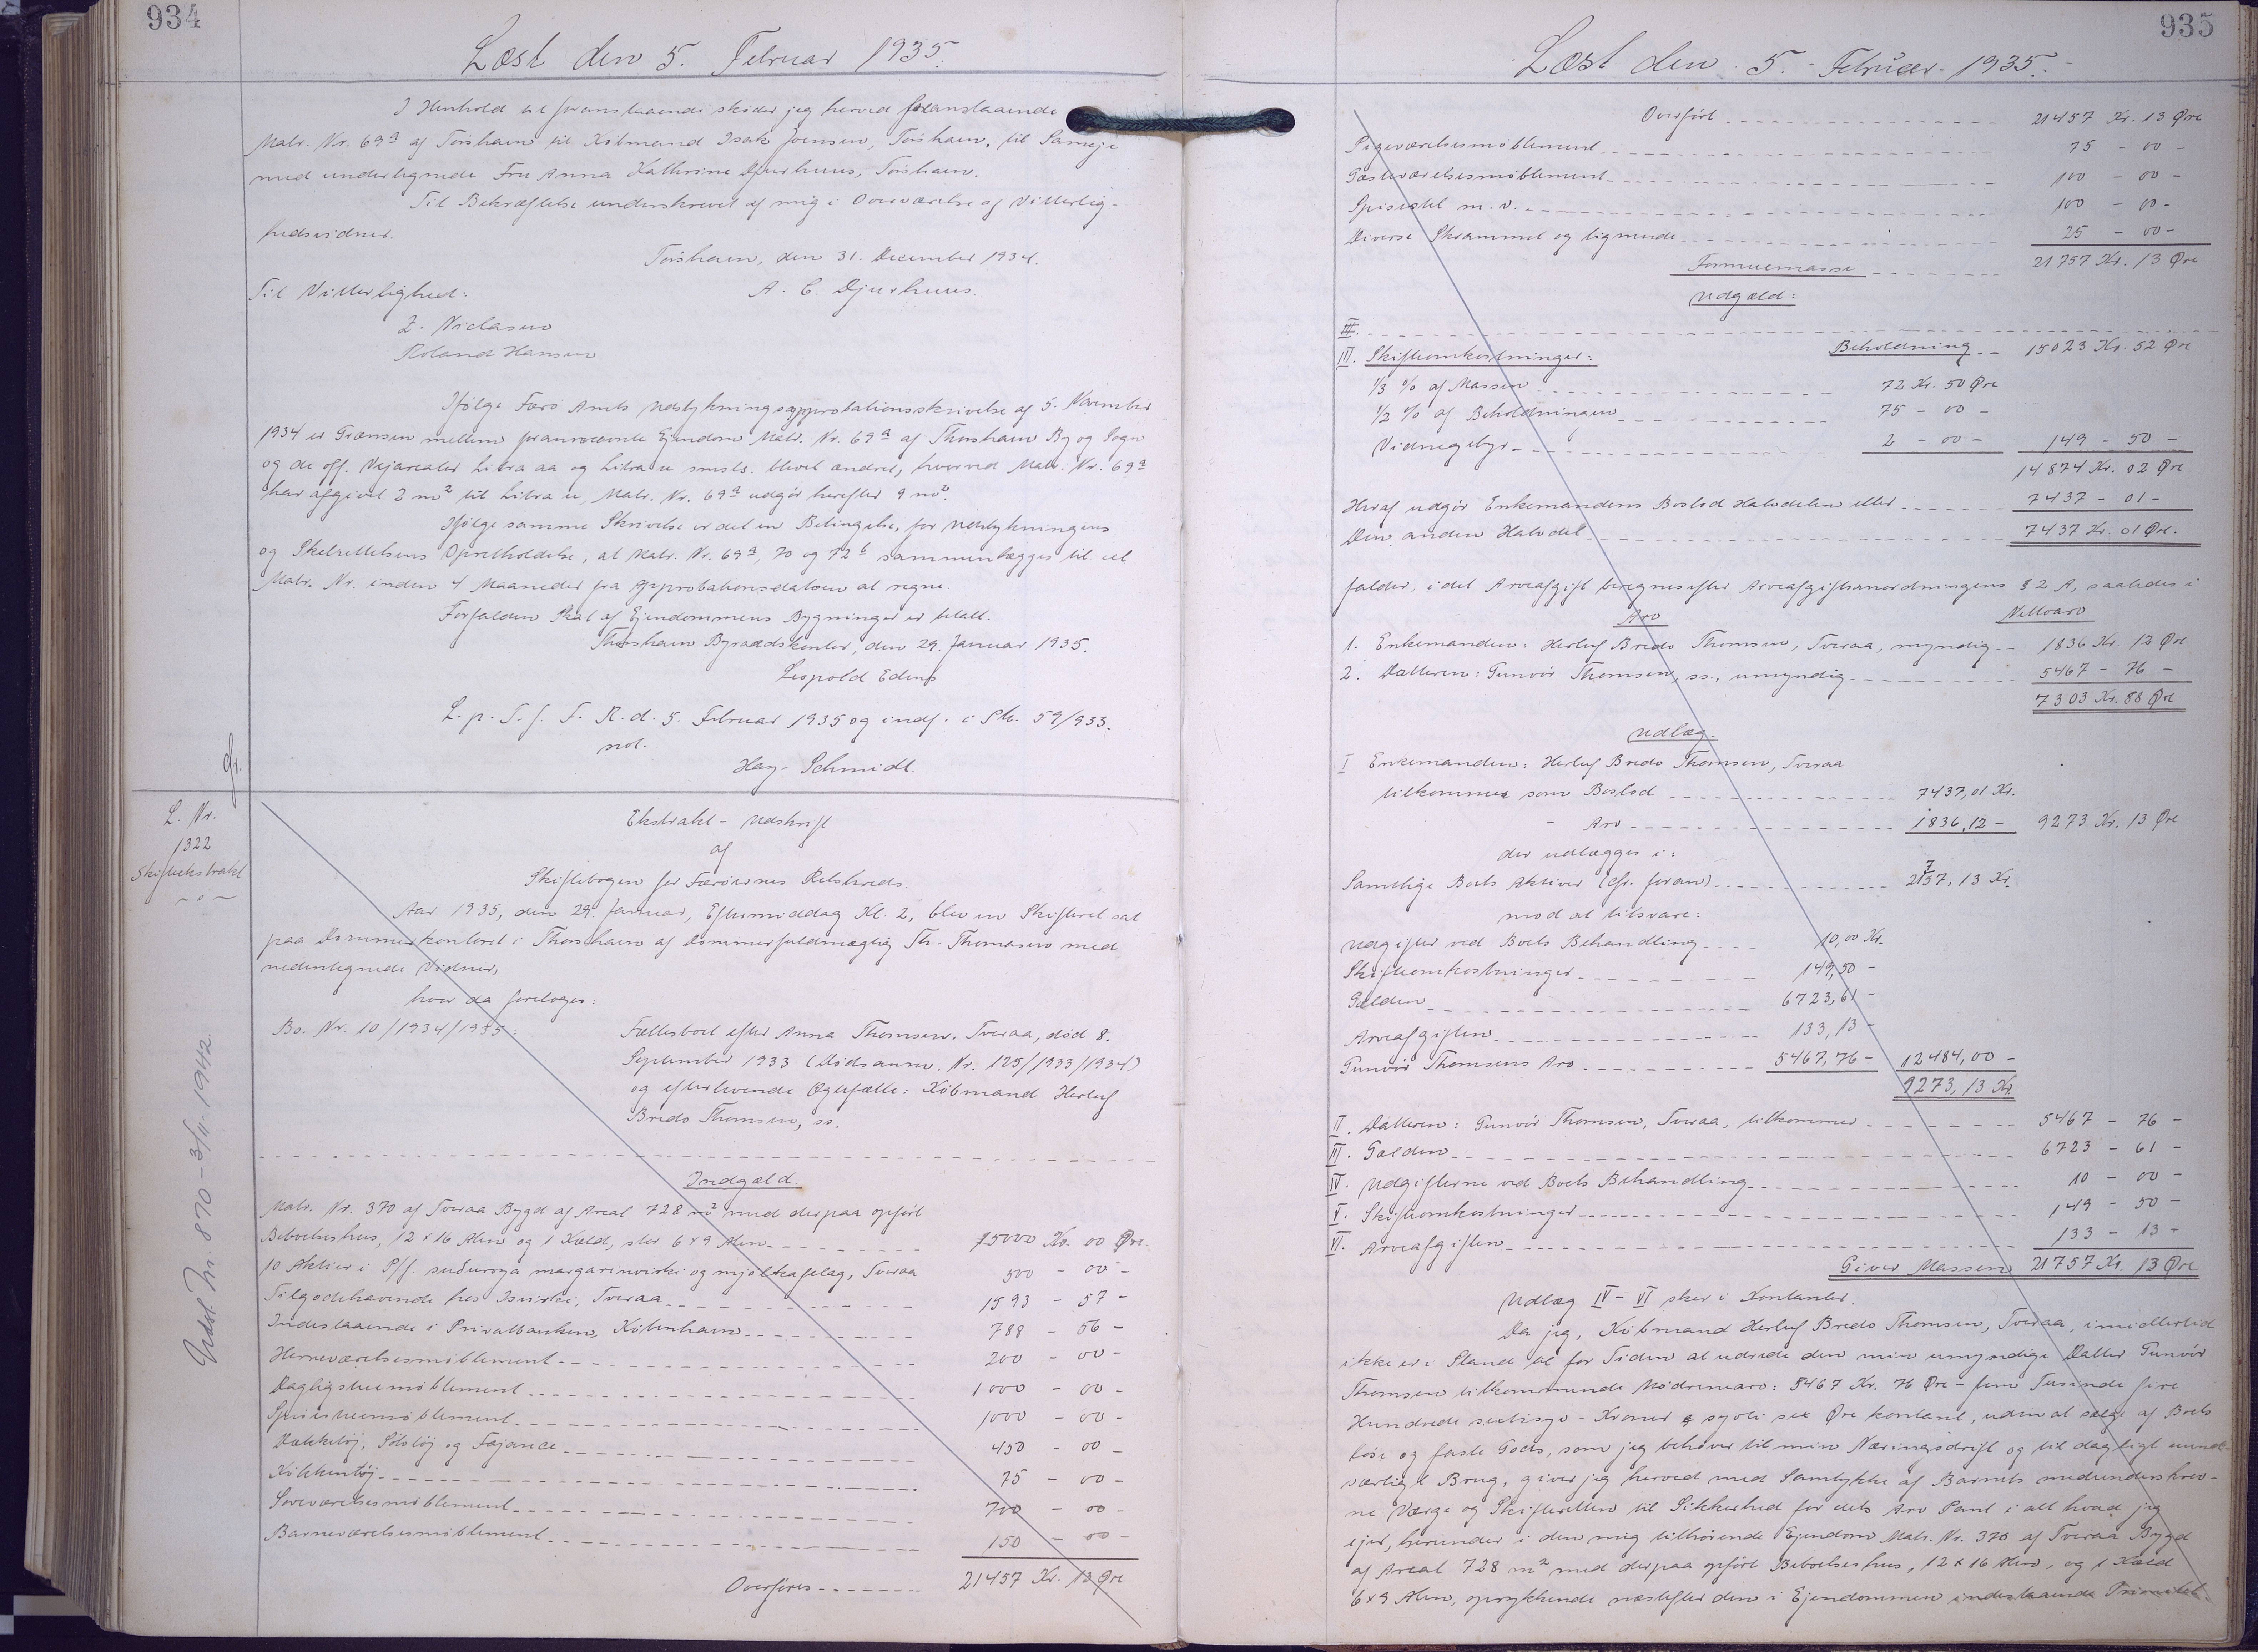 934
Læst den 5. Februar 1935.
I Henhold til foranstaaende skøder jeg herved foranstaaende
Matr. Nr. 69a af Tórshavn til Købmand Isak Joensen, Tórshavn, til Sameje
med underlegnede Fru Anna Kathrine Djurhuus, Tórshavn.
Til Bekræftelse underskrevet af mig i Overværelse af Vitterlig-
hedsvidner.
Tórshavn, den 31. December 1934.
Til Vitterlighed: A. C. Djurhuus.
Z. Niclasen
Roland Hansen
Ifølge Færø Amts Udstykningsapprobationsskrivelse af 5. November
1934 er Grænsen mellem forannævnte Ejendom Matr. Nr. 69a af Thorshavn By og Sogn
og de off. Vejarealer Litra aa og Litra u smsts. blevet ændret, hvorved Matr. Nr. 69a
har afgivet 2 m² til Litra u, Matr. Nr. 69a udgør herefter 9 m².
Ifølge samme Skrivelse er det en Betingelse, for Udstykningens
og Skelrettelsens Opretholdelse, at Matr. Nr. 69a, 70 og 72b sammenlægges til et
Matr. Nr. inden 4 Maaneder fra Approbationsdatoen at regne.
Forfalden Skat af Ejendommens Bygninger er betalt.
Thorshavn Byraadskontor, den 29. Januar 1935.
Leopold
L. p. T. f. F. R. d. 5. Februar 1935 og indf. i Sk. 59/933.
not.
Hay-Schmidt.
L. Nr.
1322
Skifteekstrakt
- " -
Udsl. Nr. 870 - 3/11 1942
Ekstrakt-Udskrift
af
Skiftebogen for Færøernes Retskreds.
Aar 1935, den 29. Januar, Eftermiddag Kl. 2, blev en Skifteret sat
paa Dommerkontoret i Thorshavn af Dommerfuldmægtig Th. Thomassen med
nedentegnede Vidner,
hvor da foretoges:
Bo. Nr. 10/1934/1935: Fællesboet efter Anna Thomsen, Tveraa, død 8.
September 1933 (Dødsanm. Nr. 125/1933/1934)
og efterlevende Ægtefælle: Købmand Herluf
Bredo Thomsen, ss.
Indgæld.
Matr. Nr. 370 af Tveraa Bygd af Areal 728 m² med derpaa opført
Beboelseshus, 12 x 16 Alen og 1 Kæld, stor 6 x 9 Alen 15000 Kr. 00 Øre.
10 Aktier i P/f. suðuroya margarinvirki og mjólkafelag, Tveraa 500 - 00 -
Tilgodehavende hos Isvirki, Tveraa 1593 - 57 -
Indestaaende i Privatbanken, København 788 - 56 -
Herreværelsesmøblement 200 - 00 -
Dagligstuemøblement 1000 - 00 -
Spisestuemøblement 1000 - 00 -
Dækketøj, Sølvtøj og Fajance 450 - 00 -
Køkkentøj 75 - 00 -
Soveværelsesmøblement 700 - 00 -
Barneværelsesmøblement 150 - 00 -
Overføres 21457 Kr. 13 Øre
935
Læst den 5. Februar 1935.
Overført 21457 Kr. 13 Øre
Pigeværelsesmøblement 75 - 00 -
Gæsteværelsesmøblement 100 - 00 -
Spisestel m. v. 100 - 00 -
Diverse Skrammel og lignende 25 - 00 -
Formuemasse 21757 Kr. 13 Øre
Udgæld:
III.
Beholdning 15023 Kr. 52 Øre
Skifteomkostninger:
1/3 % af Massen 72 Kr. 50 Øre
1/2 % af Beholdningen 75 - 00 -
Vidnegebyr 2 - 00 - 149 - 50 -
14874 Kr. 02 Øre
Heraf udgør Enkemandens Boslod Halvdelen eller 7437 - 01 -
Den anden Halvdel 7437 Kr. 01 Øre.
falder, idet Arveafgift beregnes efter Arveafgiftsanordningens § 2 A, saaledes i
Arv Nettoarv
1. Enkemanden: Herluf Bredo Thomsen, Tveraa, myndig 1836 Kr. 12 Øre
2. Datteren: Gunvör Thomsen, ss., umyndig 5467 - 76 -
7303 Kr. 88 Øre
Udlæg.
I Enkemanden: Herluf Bredo Thomsen, Tveraa
tilkommer som Boslod 7437,01 Kr.
- Arv 1836,12 - 9273 Kr. 13 Øre
der udlægges i:
Samtlige Boets Aktiver (cfr. foran) 21757,13 Kr.
mod at tilsvare:
Udgifter ved Boets Behandling 10,00 Kr.
Skifteomkostninger 149,50 -
Gælden 6723,61 -
Arveafgiften 133,13 -
Gunvör Thomsens Arv 5467,76 - 12484,00 -
9273,13 Kr.
II. Datteren: Gunvör Thomsen, Tveraa, tilkommer 5467 - 76 -
III. Gælden 6723 - 61 -
IV. Udgifterne ved Boets Behandling 10 - 00 -
V. Skifteomkostninger 149 - 50 -
VI. Arveafgiften 133 - 13 -
Giver Massen 21757 Kr. 13 Øre
Udlæg IV - VI sker i Kontanter.
Da jeg, Købmand Herluf Bredo Thomsen, Tveraa, imidlertid
ikke er i Stand til for Tiden at udrede den min umyndige Datter Gunvör
Thomsen tilkommende Mødrenearv: 5467 Kr. 76 Øre - fem Tusinde fire
Hundrede seksti syv - Kroner og syvti sex Øre kontant, uden at sælge af Boets
løse og faste Gods, som jeg behøver til min Næringsdrift og til dagligt uund-
værligt Brug, giver jeg herved med Samtykke af Barnets medunderskrev-
ne Værge og Skifteretten til Sikkerhed for dets Arv Pant i alt hvad jeg
ejer, herunder i den mig tilhørende Ejendom Matr. Nr. 370 af Tveraa Bygd
af Areal 728 m² med derpaa opført Beboelseshus, 12 x 16 Alen, og 1 Kæld
6 x 9 Alen, oprykkende næstefter den i Ejendommen indestaaende